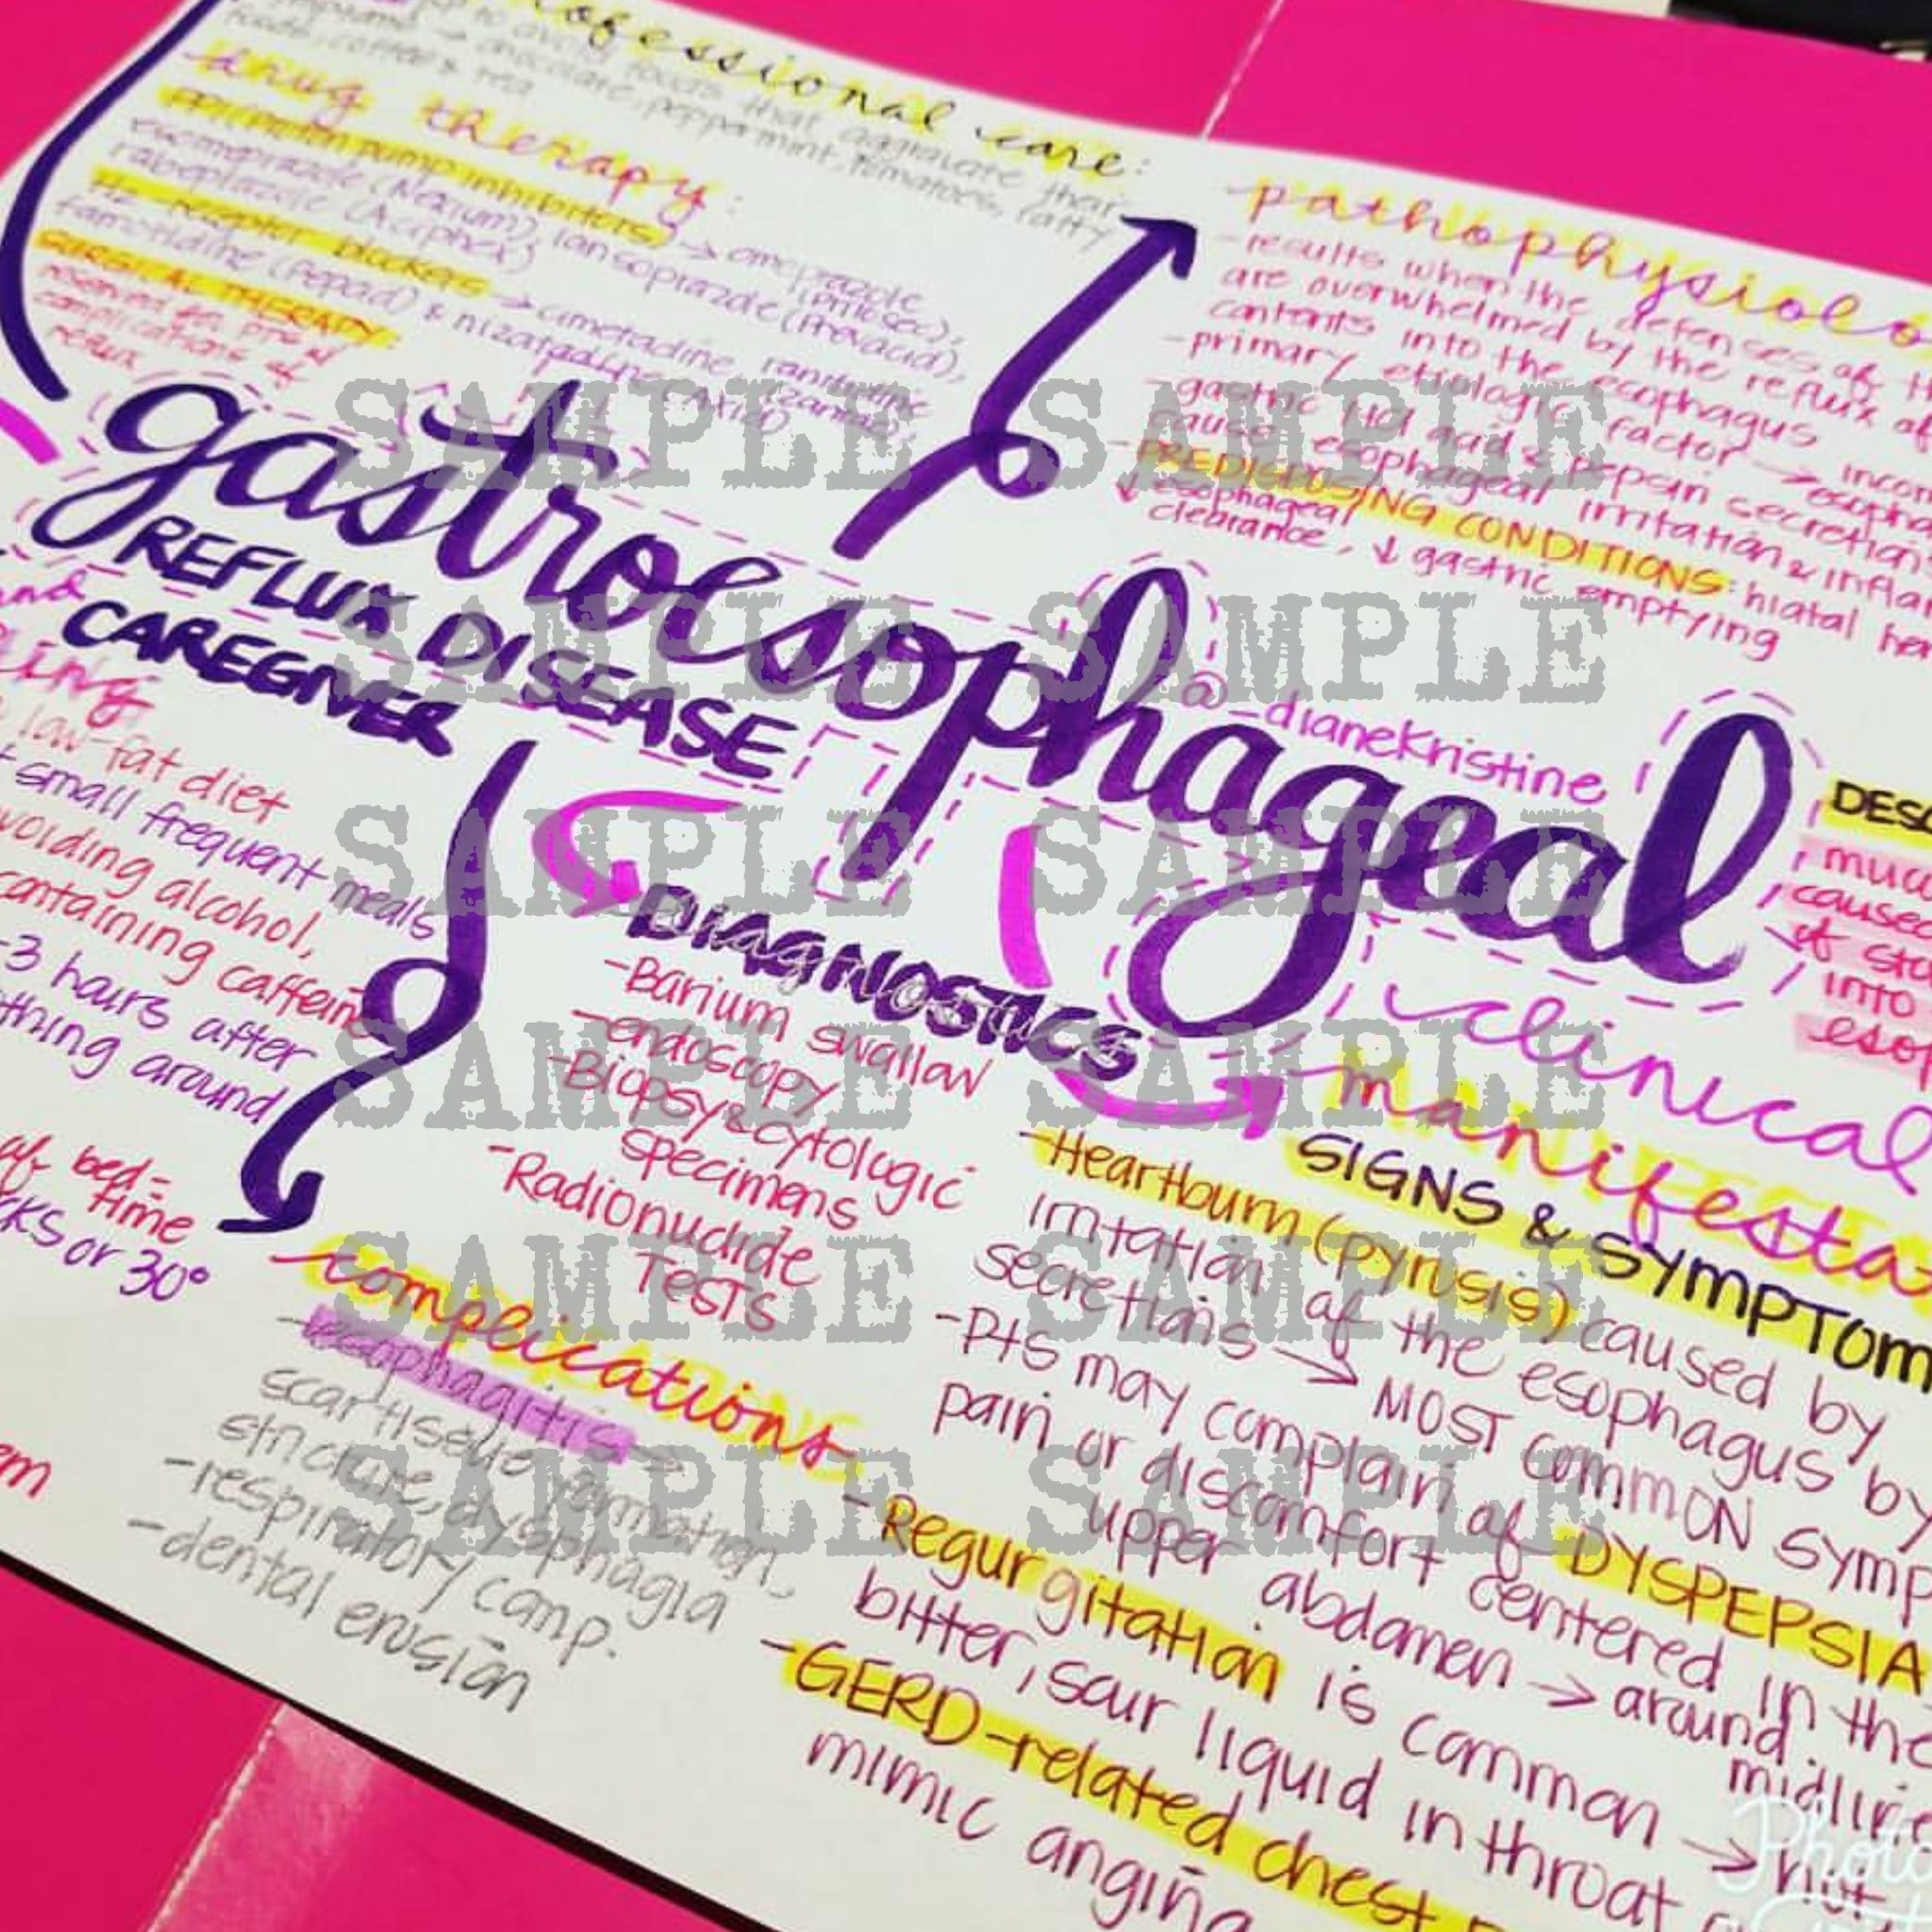 professional care:
to avoid foods that aggravate their
chocolate, peppermint, tomatoes, fatty
foods, coffee & tea
drug therapy:
PPI (proton pump inhibitors) → omeprazole
(Prilosec),
esomeprazole (Nexium), lansoprazole (Prevacid),
rabeprazole (Aciphex)
H2-receptor blockers → cimetadine, ranitidine
(Zantac),
famotidine (Pepcid) & nizatadine (Axid)
SURGICAL THERAPY:
reserved for pts w/
complications of
reflux
pathophysiolo
-results when the defenses of th
are overwhelmed by the reflux of
contents into the esophagus
-primary etiologic factor → incom
-gastric HCl acid & pepsin secretions
cause esophageal irritation & infla
-PREDISPOSING CONDITIONS: hiatal her
↓ esophageal
clearance, ↓ gastric emptying
gastroesophageal
REFLUX DISEASE
CAREGIVER
@_dianekristine
and
low-fat diet
small frequent meals
avoiding alcohol,
containing caffeine
-3 hours after
thing around
of bed=
time
or 30°
DIAGNOSTICS
-Barium swallow
-endoscopy
-Biopsy & cytologic
specimens
-Radionuclide
TESTS
complications
-esophagitis →
scar tissue formation,
stricture, dysphagia
-respiratory comp.
-dental erosion
DES
muc
caused
of sto
into
esop
clinical
manifesta
SIGNS & SYMPTOM
-Heartburn (pyrosis) caused by
irritation of the esophagus by
secretions → MOST COMMON SYMP
-Pts may complain of DYSPEPSIA
pain or discomfort centered in the
upper abdomen → around
midline
-Regurgitation is common → hot,
bitter, sour liquid in throat
-GERD-related chest
mimic angina
SAMPLE SAMPLE
SAMPLE SAMPLE
SAMPLE SAMPLE
SAMPLE SAMPLE
SAMPLE SAMPLE
SAMPLE SAMPLE
Photo